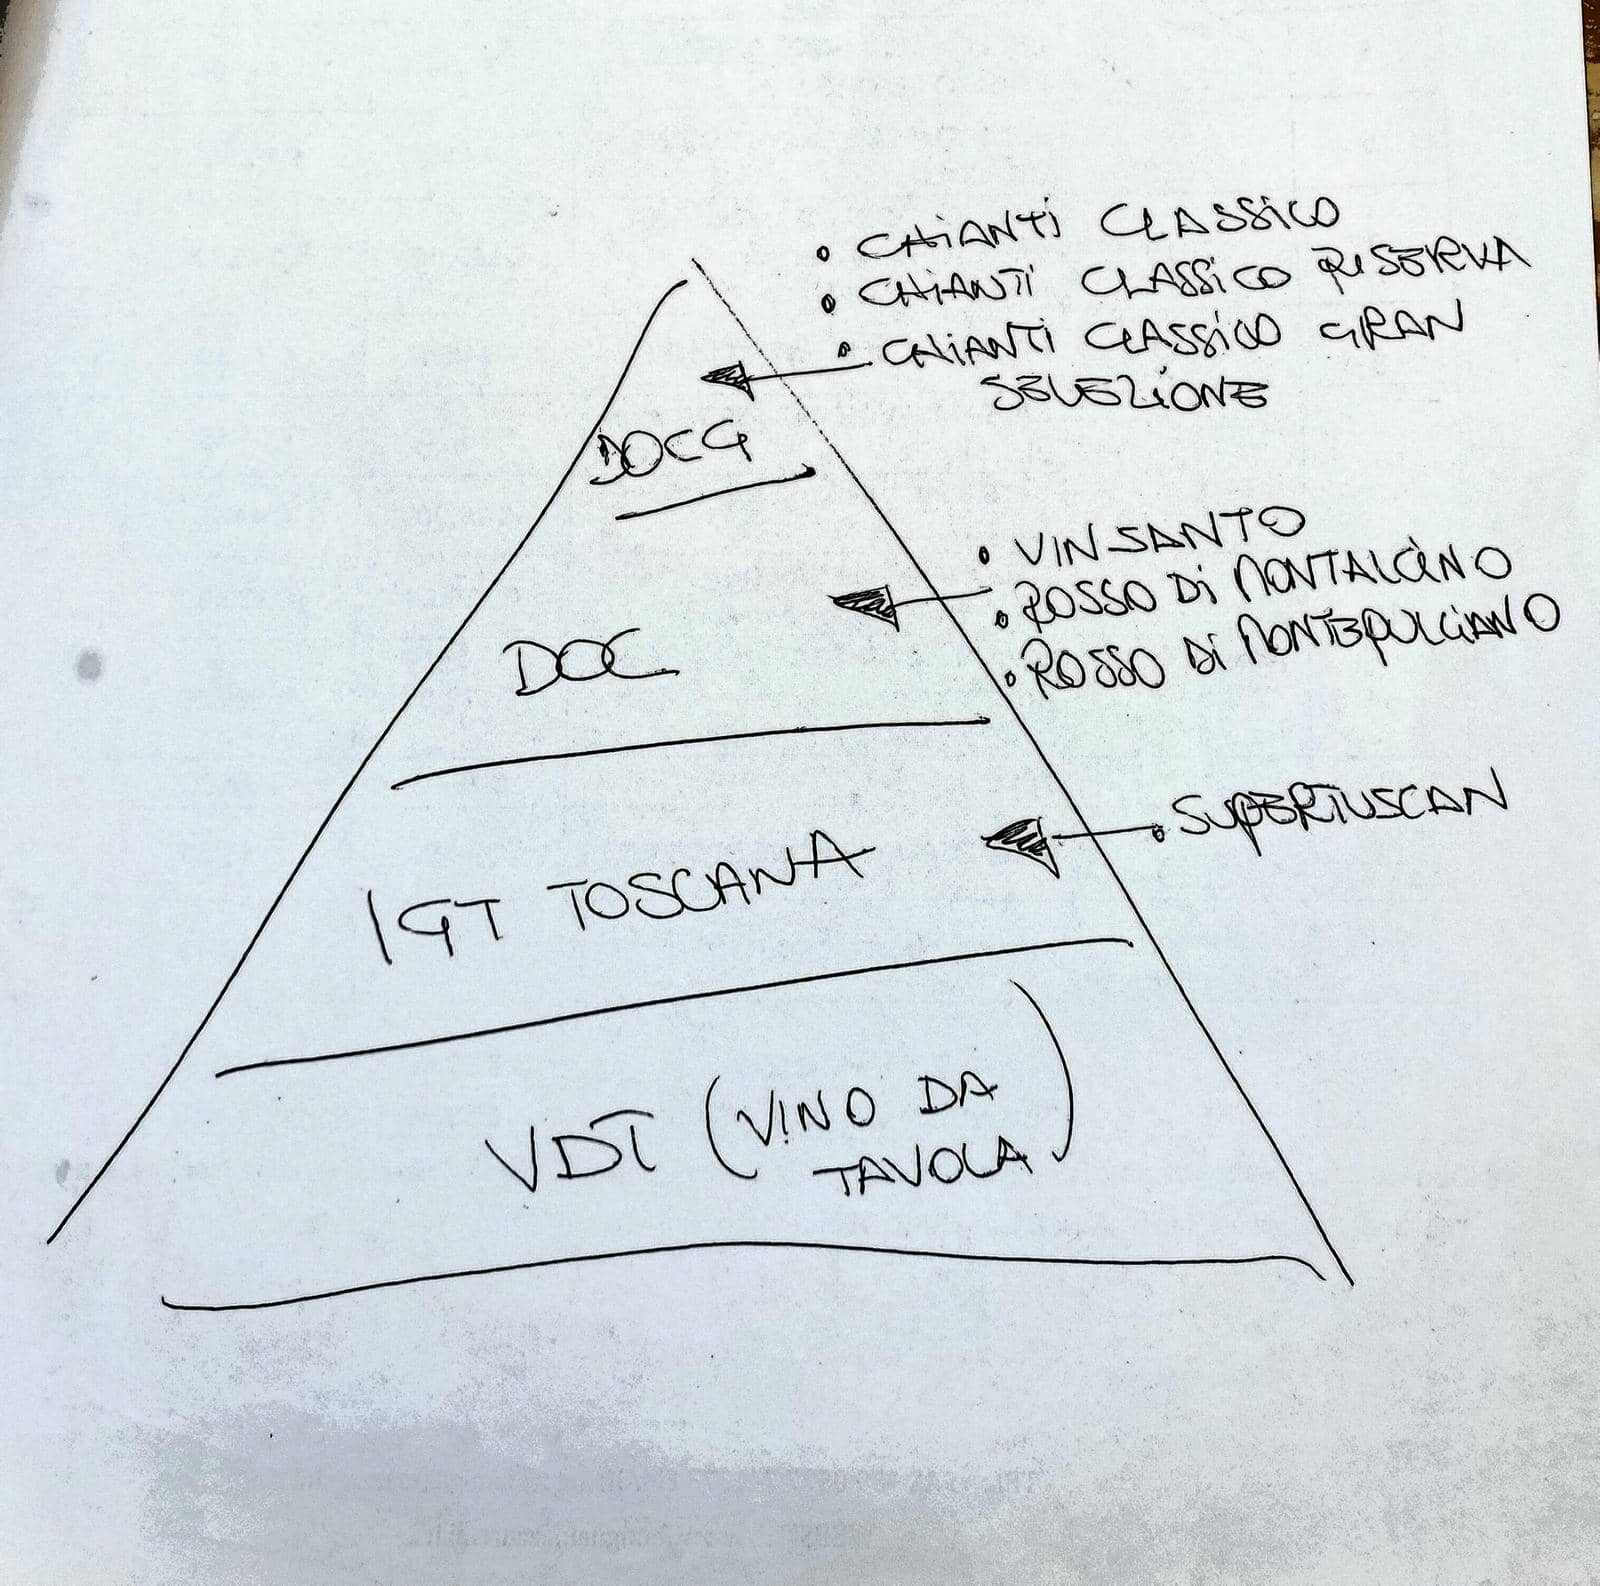 • CHIANTI CLASSICO
• CHIANTI CLASSICO RISERVA
• CHIANTI CLASSICO GRAN
SELEZIONE
DOCG
• VINSANTO
• ROSSO DI MONTALCINO
• ROSSO DI MONTEPULCIANO
DOC
• SUPERTUSCAN
IGT TOSCANA
VDT (VINO DA
TAVOLA)